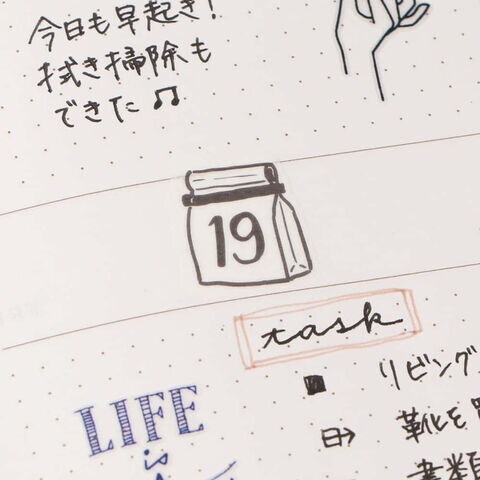 今日も早起き!
拭き掃除も
できた♫
19
task
リビング
靴を
書類
LIFE
is